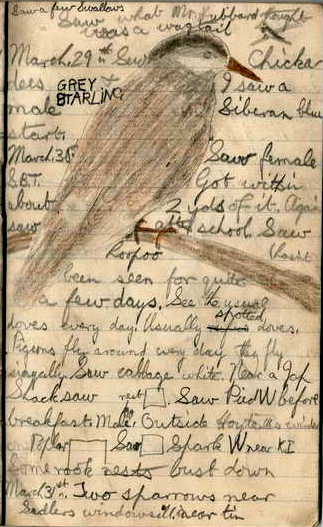 Saw a few Swallows
Saw what Mr. Hubbard thought
was a wagtail
March. 29th Saw Chicka
dees & I saw a
GREY
STARLING
male Siberian blue
start.
March. 30 Saw female
S.B.T. Got within
about 2 yds of it. Again
saw at school. Saw
Hoopoe (hasn't
been seen for quite
a few days. See the usual
spotted
doves every day. Usually doves.
Pigeons fly around every day they fly
singally. Saw cabbage white. Near a Jap
Shack saw nest Saw Pied W before
breakfast. Male. Outside Houtails window
on Poplar Saw Spark W near KI
Some rook nests bust down
March 31st. Two sparrows near
Sadlers windowsill near tin